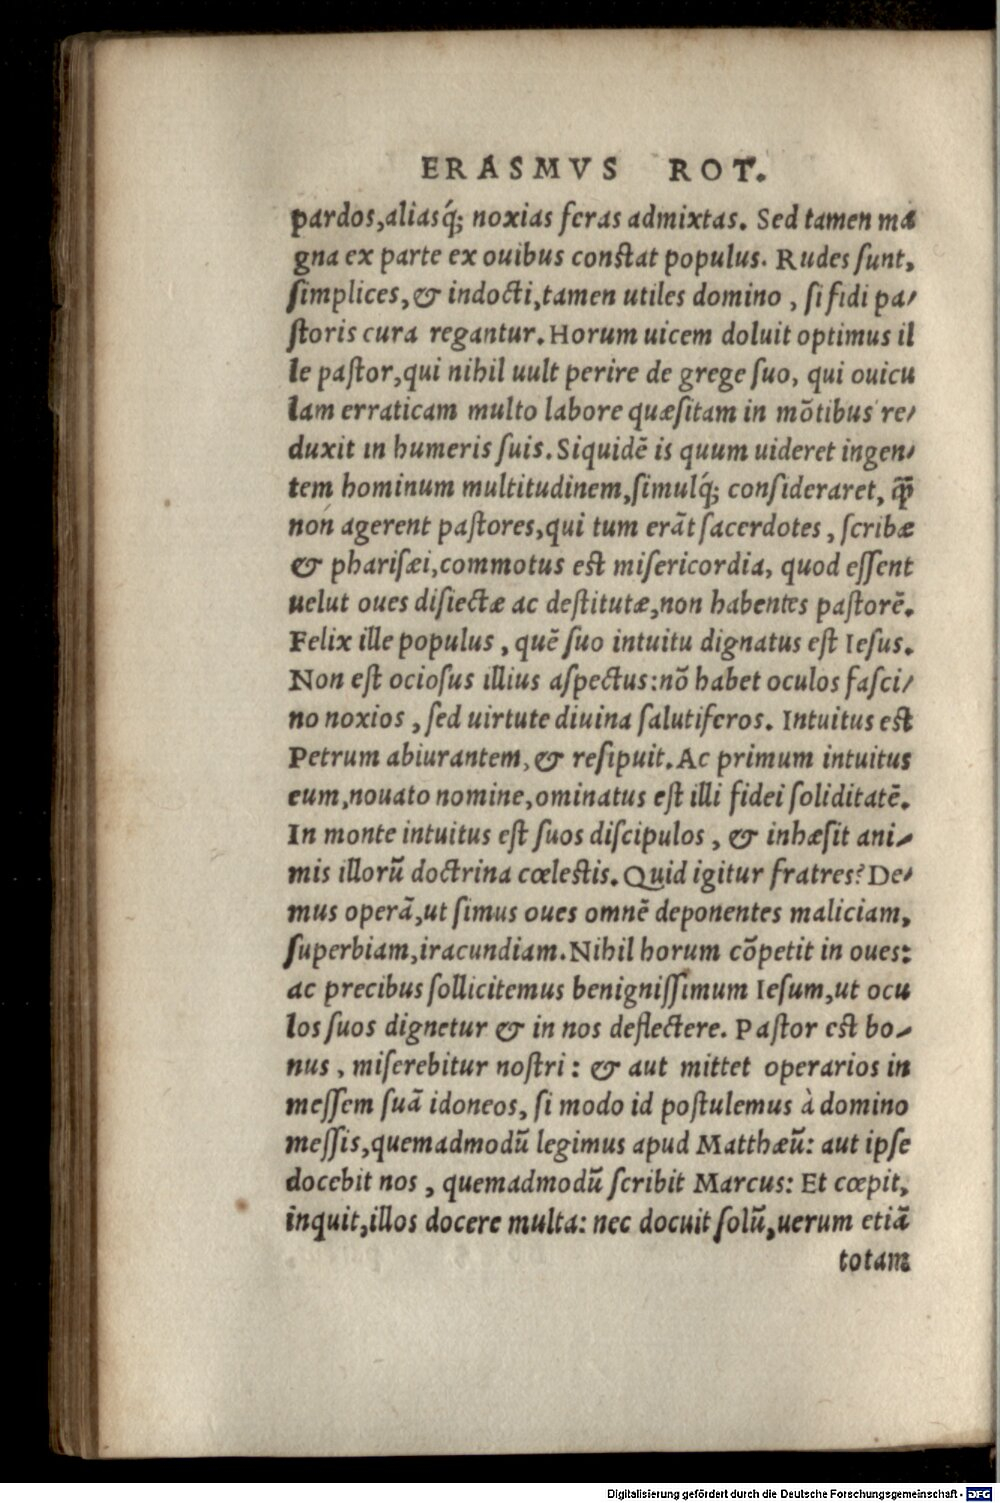 ERASMVS ROT.
pardos,aliasq́; noxias feras admixtas. Sed tamen ma
gna ex parte ex ouibus constat populus. Rudes ſunt,
ſimplices,& indocti,tamen utiles domino , ſi fidi pa/
ſtoris cura regantur. Horum uicem doluit optimus il
le paſtor,qui nihil uult perire de grege ſuo, qui ouicu
lam erraticam multo labore quæſitam in mõtibus re/
duxit in humeris ſuis. Siquidẽ is quum uideret ingen/
tem hominum multitudinem,ſimulq́; conſideraret, q̃ꝑ
non agerent paſtores,qui tum erãt ſacerdotes , ſcribæ
& phariſæi,commotus est miſericordia, quod eſſent
uelut oues diſiectæ ac deſtitutæ,non habentes paſtorẽ.
Felix ille populus , quẽ ſuo intuitu dignatus eſt Ieſus.
Non eſt ocioſus illius aſpectus:nõ habet oculos faſci/
no noxios , ſed uirtute diuina ſalutiferos. Intuitus est
Petrum abiurantem, & reſipuit. Ac primum intuitus
eum,nouato nomine,ominatus eſt illi fidei ſoliditatẽ.
In monte intuitus eſt ſuos diſcipulos , & inhæſit ani/
mis illorũ doctrina cœlestis. Quid igitur fratres? De/
mus operã,ut ſimus oues omnẽ deponentes maliciam,
ſuperbiam,iracundiam. Nihil horum cõpetit in oues:
ac precibus ſollicitemus benigniſſimum Ieſum,ut ocu
los ſuos dignetur & in nos deflectere. Paſtor est bo/
nus , miſerebitur noſtri : & aut mittet operarios in
meſſem ſuã idoneos, ſi modo id poſtulemus à domino
meſſis,quemadmodũ legimus apud Matthæũ: aut ipſe
docebit nos , quemadmodũ ſcribit Marcus: Et cœpit,
inquit,illos docere multa: nec docuit ſolũ,uerum etiã
totam
Digitalisierung gefördert durch die Deutsche Forschungsgemeinschaft - DFG